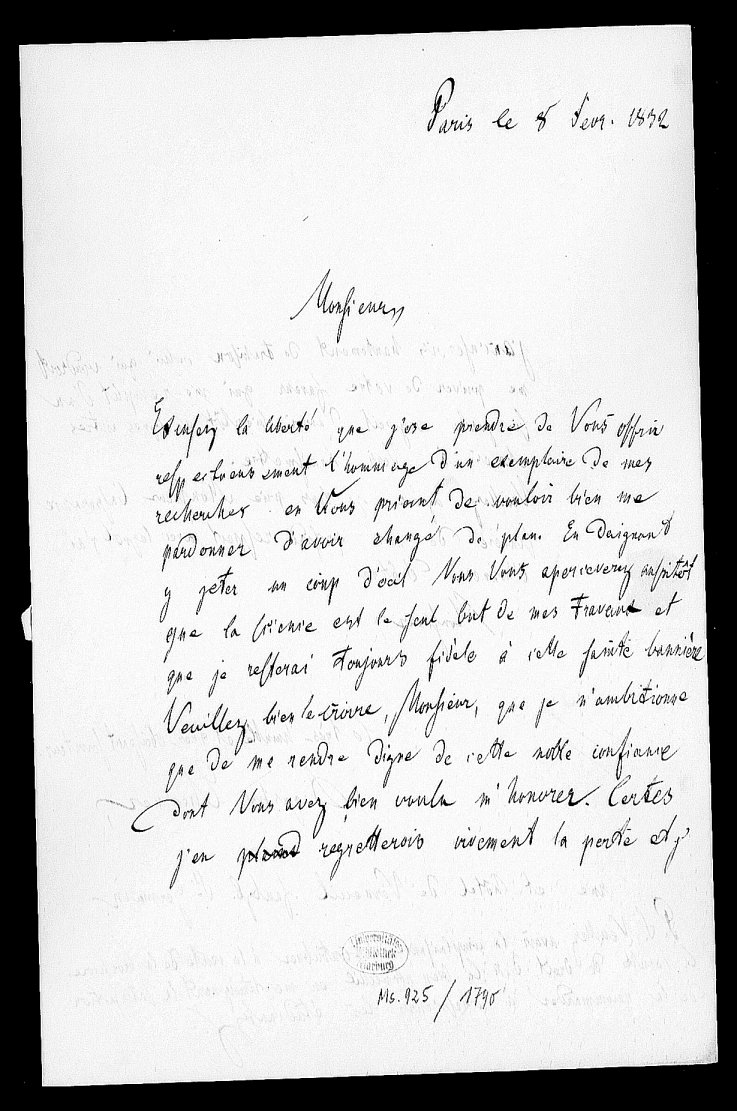 Paris le 8 Fevr. 1832
Monsieur,
Excusez la liberté que j'ose prendre de Vous offrir
respectueusement l'hommage d'un exemplaire de mes
recherches en Vous priant de vouloir bien me
pardonner d'avoir changé de plan. En daignant
y jeter un coup d'œil Vous Vous apercevrez aussitot
que la science est le seul but de mes travaux et
que je resterai toujours fidèle à cette sainte bannière
Veuillez bien le croire, Monsieur, que je n'ambitionne
que de me rendre digne de cette noble confiance
dont Vous avez bien voulu m'honorer. Certes
j'en regretterois vivement la perte et j'
Universitäts
Bibliothek
Marburg
Ms. 925 / 1790